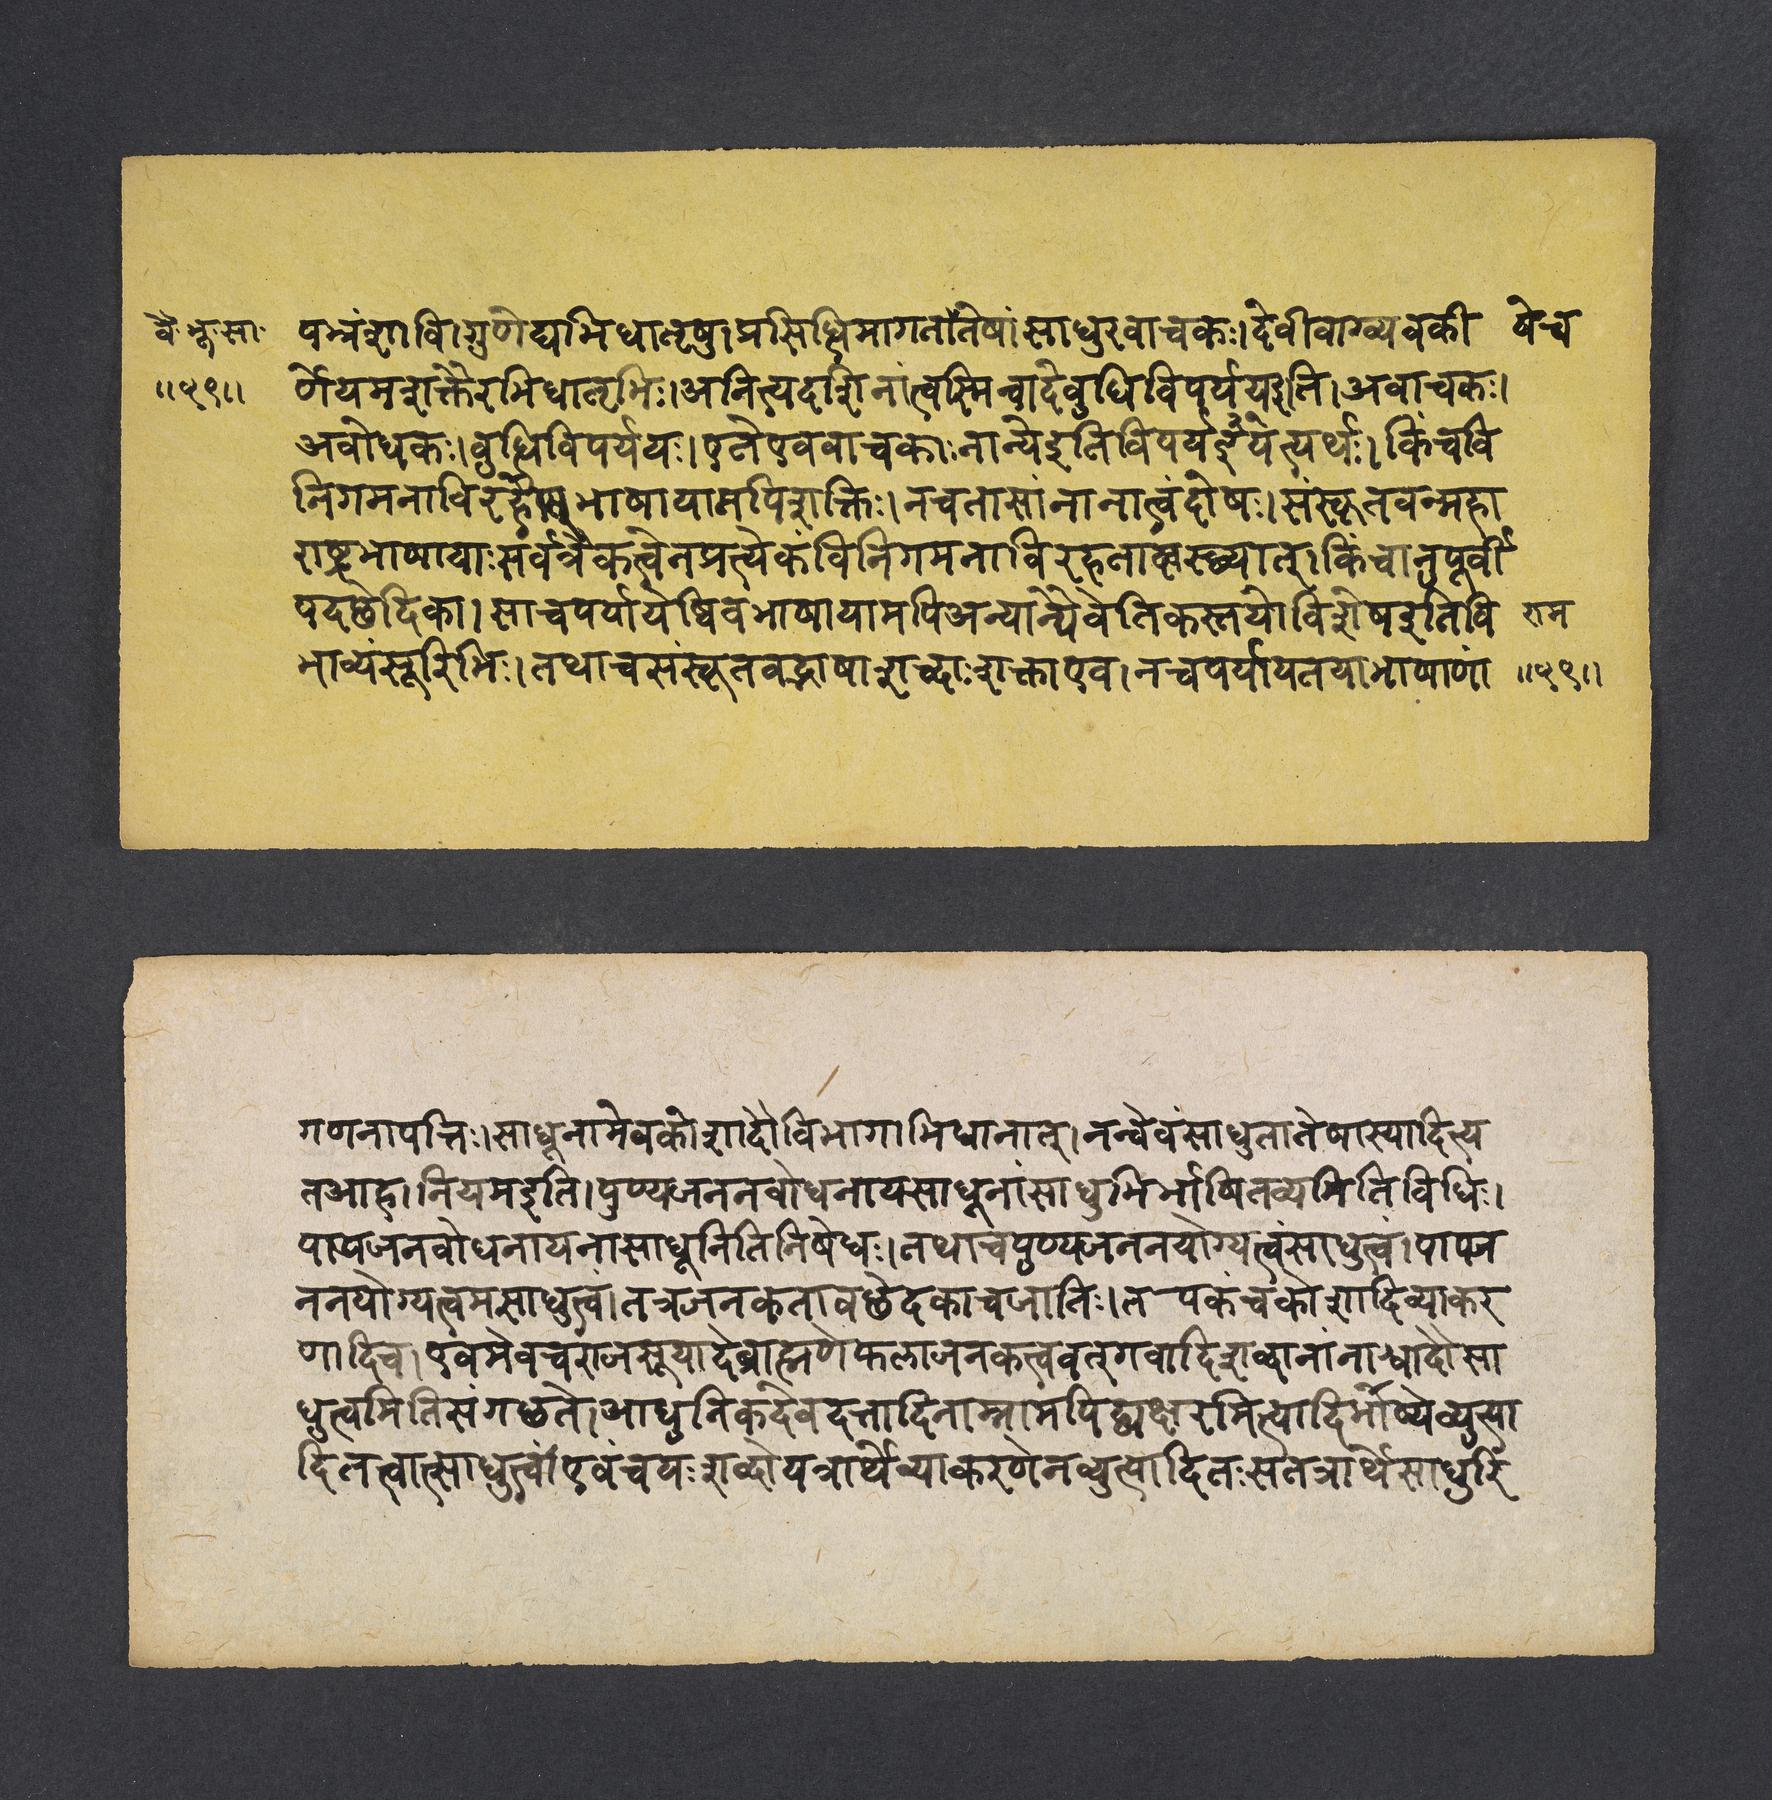 वै॰ भू॰ सा॰
पभ्रंशा वि।गुणेद्यभिधातृषु।प्रसिद्धिमागतातेषां साधुरवाचकः।देवीवाग्व्यवकी
येच
॥५९॥
र्णेयमशक्तैरभिधातृभिः।अनित्यदर्शिनांत्वस्मिन्वादेबुधिविपर्ययइति।अवाचकः।
अवोधकः।बुधिविपर्ययः।एतेएववाचकाःनान्येइतिविपर्यइयेत्यर्थः।किंचवि
निगमनाविरहे भाषायामपिशक्तिः।नचतासांनानात्वंदोषः।संस्कृतवन्महा
राष्ट्रभाषायाःसर्वत्रैकत्वेनप्रत्येकंविनिगमनाविरहता स्थ्यात्।किंचानुपूर्वी
पदछेदिका।साचपर्यायेष्विवभाषायामपिअन्यान्यैवेतिकस्तयोर्विशेषइतिवि
राम
भाव्यंसूरिभिः।तथाचसंस्कृतवद्भाषाशब्दाःशक्ताएव।नचपर्यायतयाभाषाणां
॥५९॥
गणनापत्तिः।साधूनामेवकोशादौविभागाभिधानात्।नन्वेवंसाधुतातेषास्यादित्य
तआह।नियमइति।पुण्यजननवोधनायसाधूनांसाधुभिर्भाषितव्यमितिविधिः।
पापजनवोधनायनासाधूनितिनिषेधः।तथाचपुण्यजननयोग्यत्वंसाधुत्वं।पापज
ननयोग्यत्वमसाधुत्वं।तत्रजनकतावछेदकाचजातिः।त पकंचकोशादिव्याकर
णादिच।एवमेवचराजसूयादेर्ब्राह्मणेफलाजनकत्ववत्गवादिशब्दानांनाश्वादौसा
धुत्वमितिसंगछते।आधुनिकदेवदत्तादिनाम्नामपिद्व्यक्षरमित्यादिर्भाष्येव्युत्पा
दितत्वात्साधुत्वं।एवंचयःशब्दोयत्रार्थेव्याकरणेनव्युत्पादितःसतत्रार्थेसाधुरि